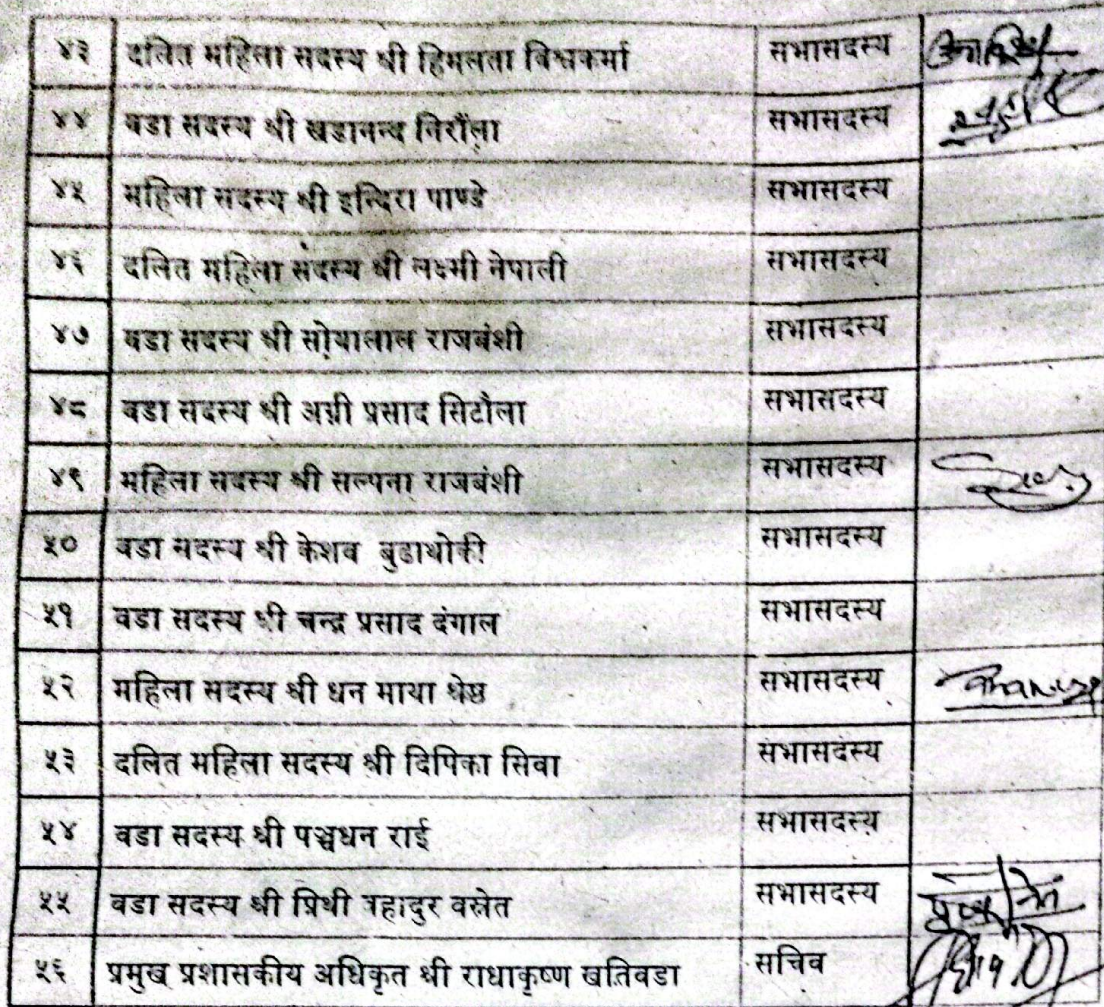 ४३ दलित महिला सदस्य श्री हिमलता विश्वकर्मा सभासदस्य
४४ वडा सदस्य श्री खडानन्द निरौला सभासदस्य
४५ महिला सदस्य श्री इन्दिरा पाण्डे सभासदस्य
४६ दलित महिला सदस्य श्री लक्ष्मी नेपाली सभासदस्य
४७ वडा सदस्य श्री सोयालाल राजबंशी सभासदस्य
४८ वडा सदस्य श्री अग्नी प्रसाद सिटौला सभासदस्य
४९ महिला सदस्य श्री सल्पना राजबंशी सभासदस्य
५० वडा सदस्य श्री केशव बुडाथोकी सभासदस्य
५१ वडा सदस्य श्री चन्द्र प्रसाद दंगाल सभासदस्य
५२ महिला सदस्य श्री धन माया श्रेष्ठ सभासदस्य
५३ दलित महिला सदस्य श्री दिपिका सिवा सभासदस्य
५४ वडा सदस्य श्री पञ्चधन राई सभासदस्य
५५ वडा सदस्य श्री प्रिथी बहादुर वस्नेत सभासदस्य
५६ प्रमुख प्रशासकीय अधिकृत श्री राधाकृष्ण खतिवडा सचिव